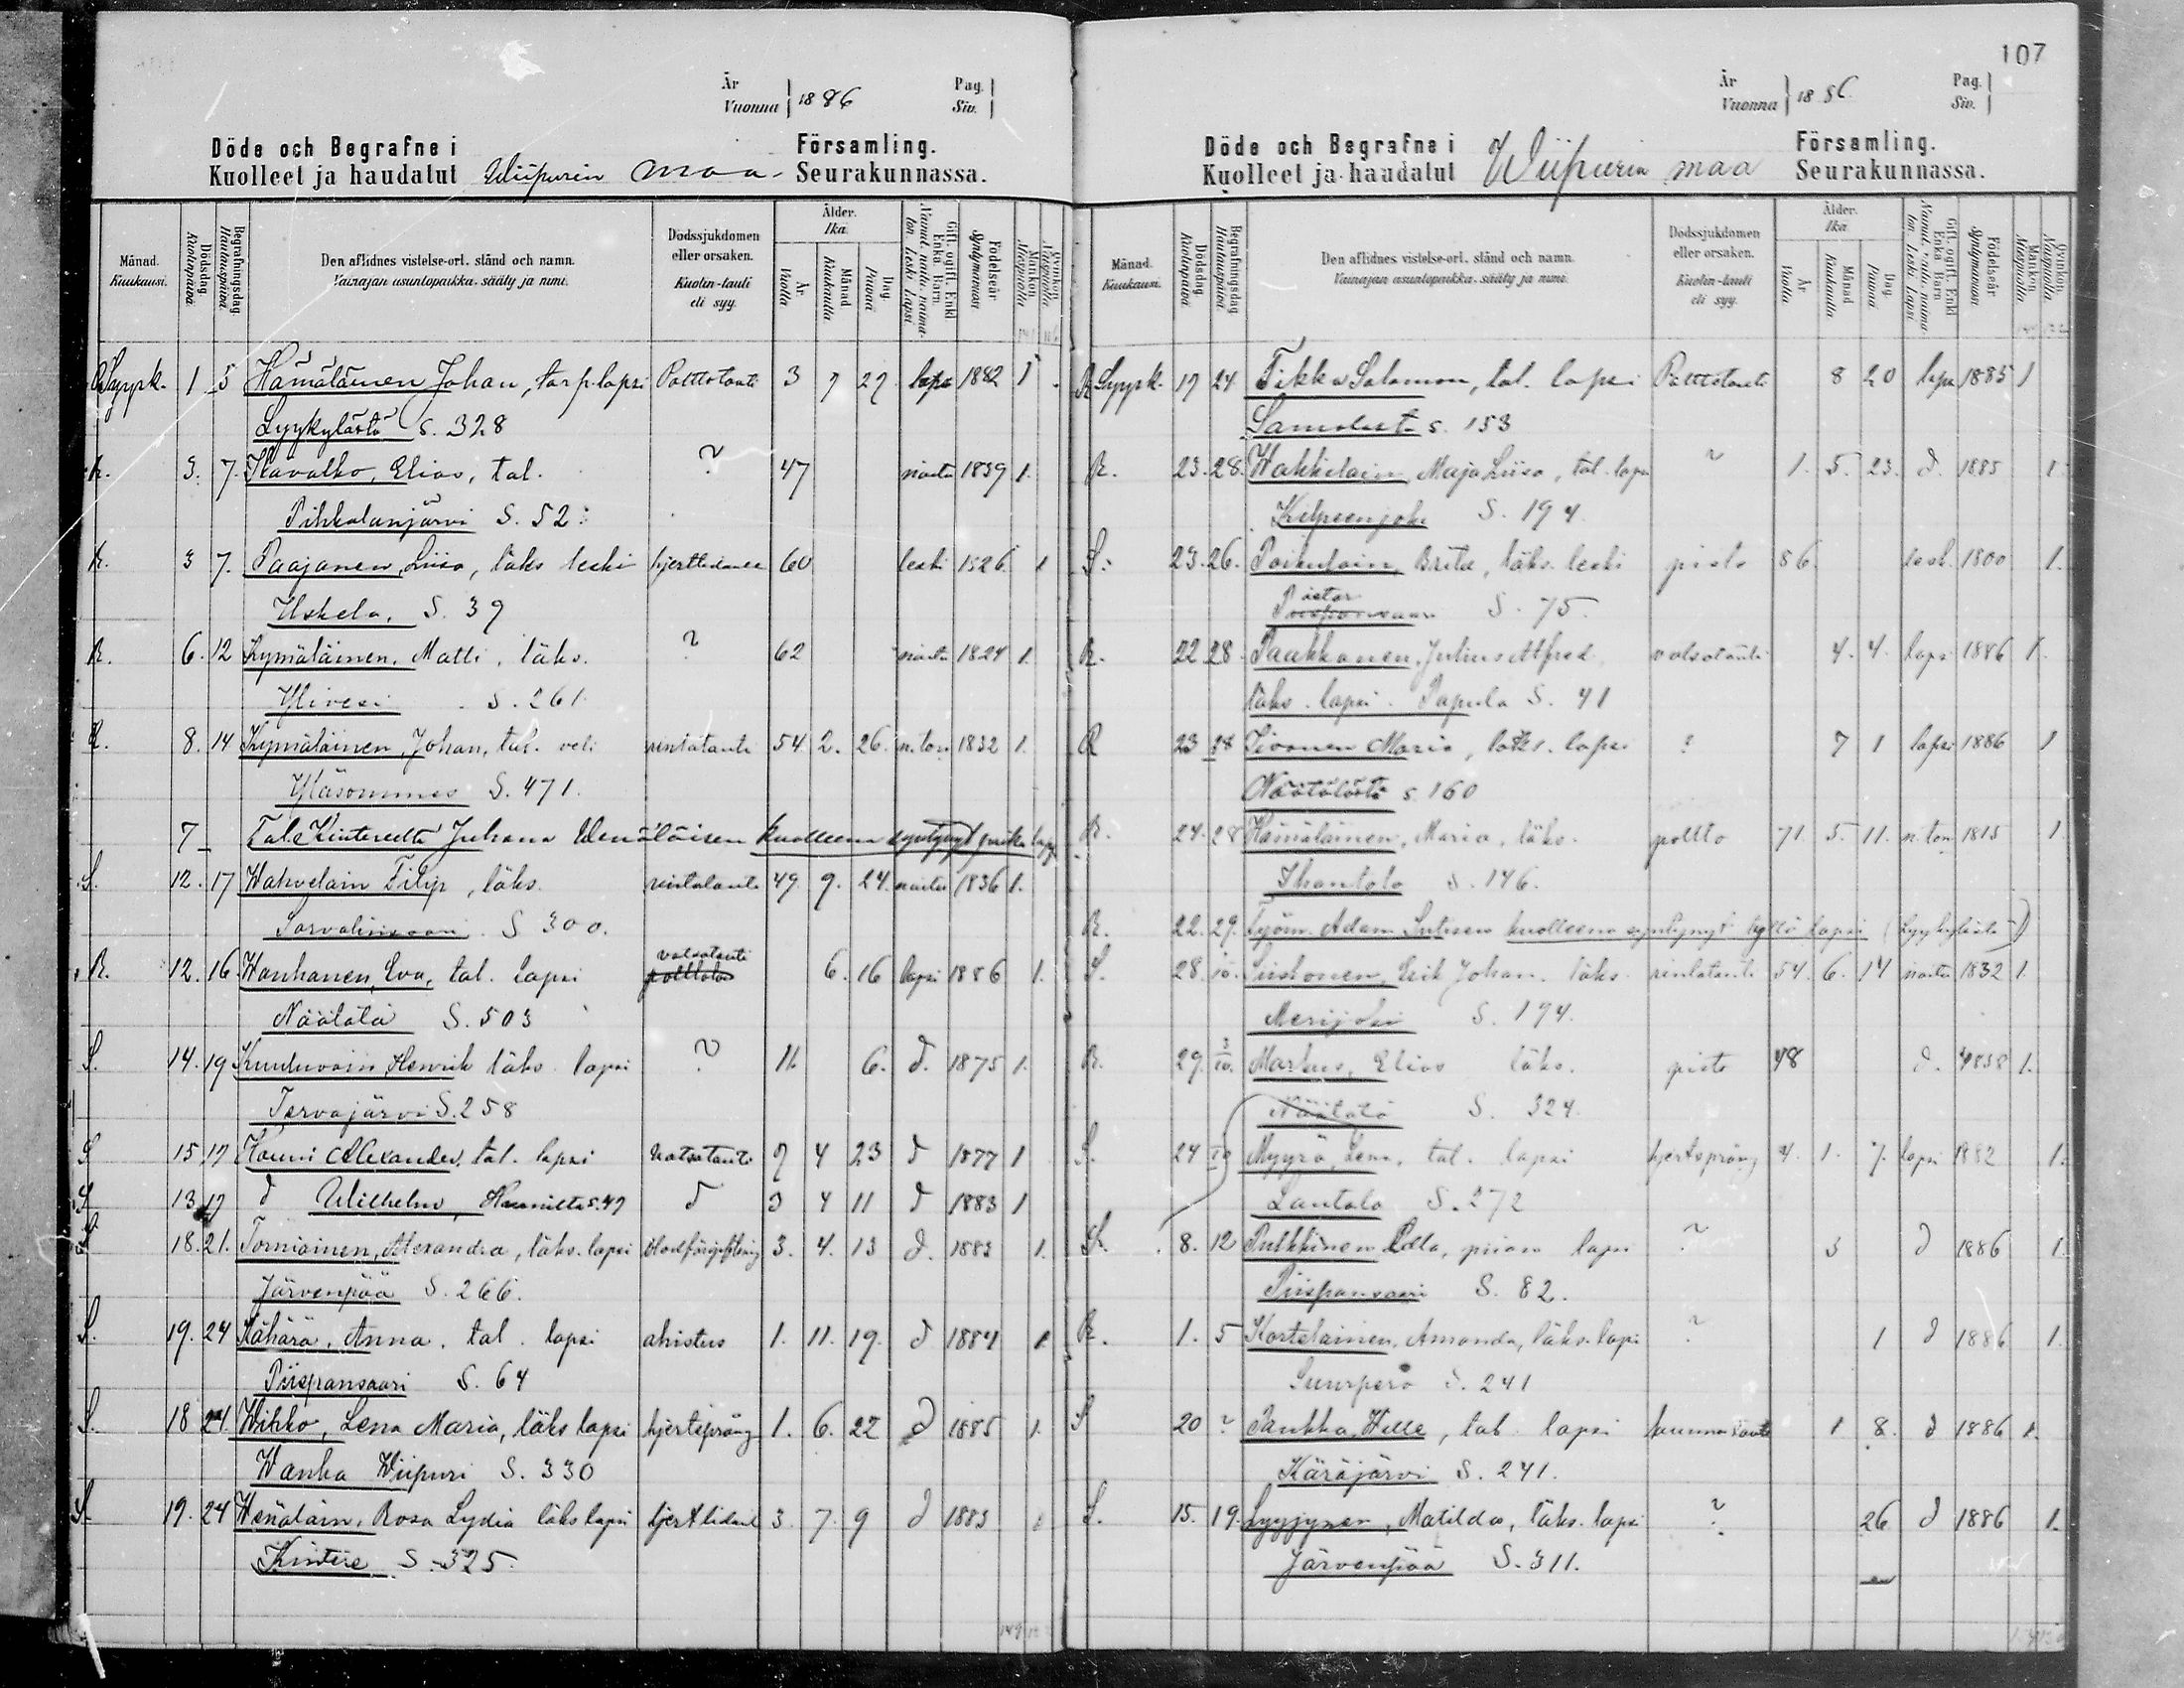 107
År
Vuonna 1886
Pag.
Siv.
Döde och Begrafne i Församling.
Kuolleet ja haudatut Wiipurin maa- Seurakunnassa.
Månad. Kuukausi.
Dödsdag. Kuolinpäivä.
Begrafningsdag. Hautauspäivä.
Den aflidnes vistelse-ort, stånd och namn.
Vainajan asuntopaikka, sääty ja nimi.
Dödssjukdomen eller orsaken.
Kuolin-tauti eli syy.
Ålder. Ikä.
År Vuotta
Månad Kuukautta
Dag. Päivää
Födelseår Syntymävuosi
Mankön. Miespuolia
Syysk. 1 5 Hämäläinen Johan, torp. lapsi Polttotauti 3 7 27 lapsi 1882 1
Lyykylästä s. 328
R. 3. 7. Kavalko, Elias, tal. ? 47 naitu 1839 1.
Pihkalanjärvi S. 52
R. 3 7. Paajanen, Liisa, läks leski hjertlidande 60 leski 1826 1
Uskela. S. 39
R. 6. 12 Kymäläinen, Matti, läks. ? 62 naitu 1824 1.
Ylivesi S. 261.
R. 8. 14 Kymäläinen, Johan, tal. veli rintatauti 54 2. 26. n. ton 1832 1.
Yläsommee S. 471.
7 Tal. Kintereeltä Juhana Wenäläisen kuolleena syntynyt poika lapsi
S. 12. 17 Wahvelain Filip, läks. rintatauti 49 9. 24. naitu 1836 1.
Sorvalinsaari S 300.
R. 12. 16 Wanhanen, Eva, tal. lapsi vatsatauti polttotau 6. 16 lapsi 1886 1.
Näätälä S. 503
S. 14. 19 Kuuluvain Henrik läks. lapsi ? 11 6. d. 1875 1.
Tervajärvi S. 258
S 15 17 Kouni Alexander, tal. lapsi Vatsatauti 9 4 23 d 1877 1
S 13 17 d Wilhelm, S. 47 d 3 4 11 d 1883 1
S 18. 21. Torniainen, Alexandra, läks. lapsi blodförgiftning 3. 4. 13 d. 1883 1.
Järvenpää S. 266.
S. 19. 24 Kähärä, Anna, tal. lapsi ahistus 1. 11. 19. d 1884 1.
Piispansaari S. 64
S. 18 24. Wihko, Lena Maria, läks lapsi hjertspräng 1. 6. 22 d 1885 1.
Wanha Wiipuri S. 330
S. 19. 24 Wenäläin, Rosa Lydia läks lapsi hjertlidand 3. 7. 9 d 1883
Kintere S. 325.
År
Vuonna 1886
Pag.
Siv.
Döde och Begrafne i Församling.
Kuolleet ja haudatut Wiipurin maa Seurakunnassa.
Månad. Kuukausi.
Dödsdag. Kuolinpäivä.
Begrafningsdag. Hautauspäivä.
Den aflidnes vistelse-ort, stånd och namn.
Vainajan asuntopaikka, sääty ja nimi.
Dödssjukdomen eller orsaken.
Kuolin-tauti eli syy.
Ålder. Ikä.
År Vuotta
Månad Kuukautta
Dag Päivää
Födelseår Syntymävuosi
Mankön. Miespuolia
Qvinkön. Vaimopuolia
R Syysk. 17 24 Tikka Salomon, tal. lapsi Polttotauti 8 20 lapsi 1885 1
Samolasta s. 153
R. 23. 28. Wakkilain, Maja Liisa, tal. lapsi ? 1. 5. 23. d. 1885 1.
Kilpeenjoki S. 194.
S. 23. 26. Poikulain, Brita, läks. leski pisto 86 lesk. 1800 1.
Piispansaari S. 75.
R. 22 28. Paakkonen, Julius Alfred vatsatauti 4. 4. lapsi 1886 1.
läks. lapsi. Papula S. 41
R 23 28 Sivonen Maria, läks. lapsi ? 7 1 lapsi 1886 1
Näätälästä s. 160
R. 24. 28 Hämäläinen, Maria, läks. poltto 71. 5. 11. n. ton 1815 1.
Ihantola S. 146.
R. 22. 29. Työm. Adam Sutisen kuolleena syntynyt tyttö lapsi (Lyykylästä)
S. 28. /10. Siiskonen, Erik Johan. läks. rintatauti 54. 6. 14 naitu 1832 1.
Merijoki S. 194.
R. 29. 3/10. Markus, Elias läks. pisto 48 d. 1838 1.
Näätälä S. 324.
S. 24 /10 Myyrä, Lena, tal. lapsi hjertspräng 4. 1. 7. lapsi 1882 1.
Lautala S. 272
S. 8. 12 Pulkkinen Ella, piian lapsi ? 3 d 1886 1.
Piispansaari S. 82.
R. 1. 5 Kortelainen, Amanda, läks. lapsi ? 1 d 1886 1.
Suurperö S. 241
S 20 ? Pankka, Wille, tal. lapsi 1 8. d 1886 1.
Käräjärvi S. 241.
S. 15. 19. Lyyjynen, Matilda, läks. lapsi ? 26 d 1886 1.
Järvenpää S. 311.